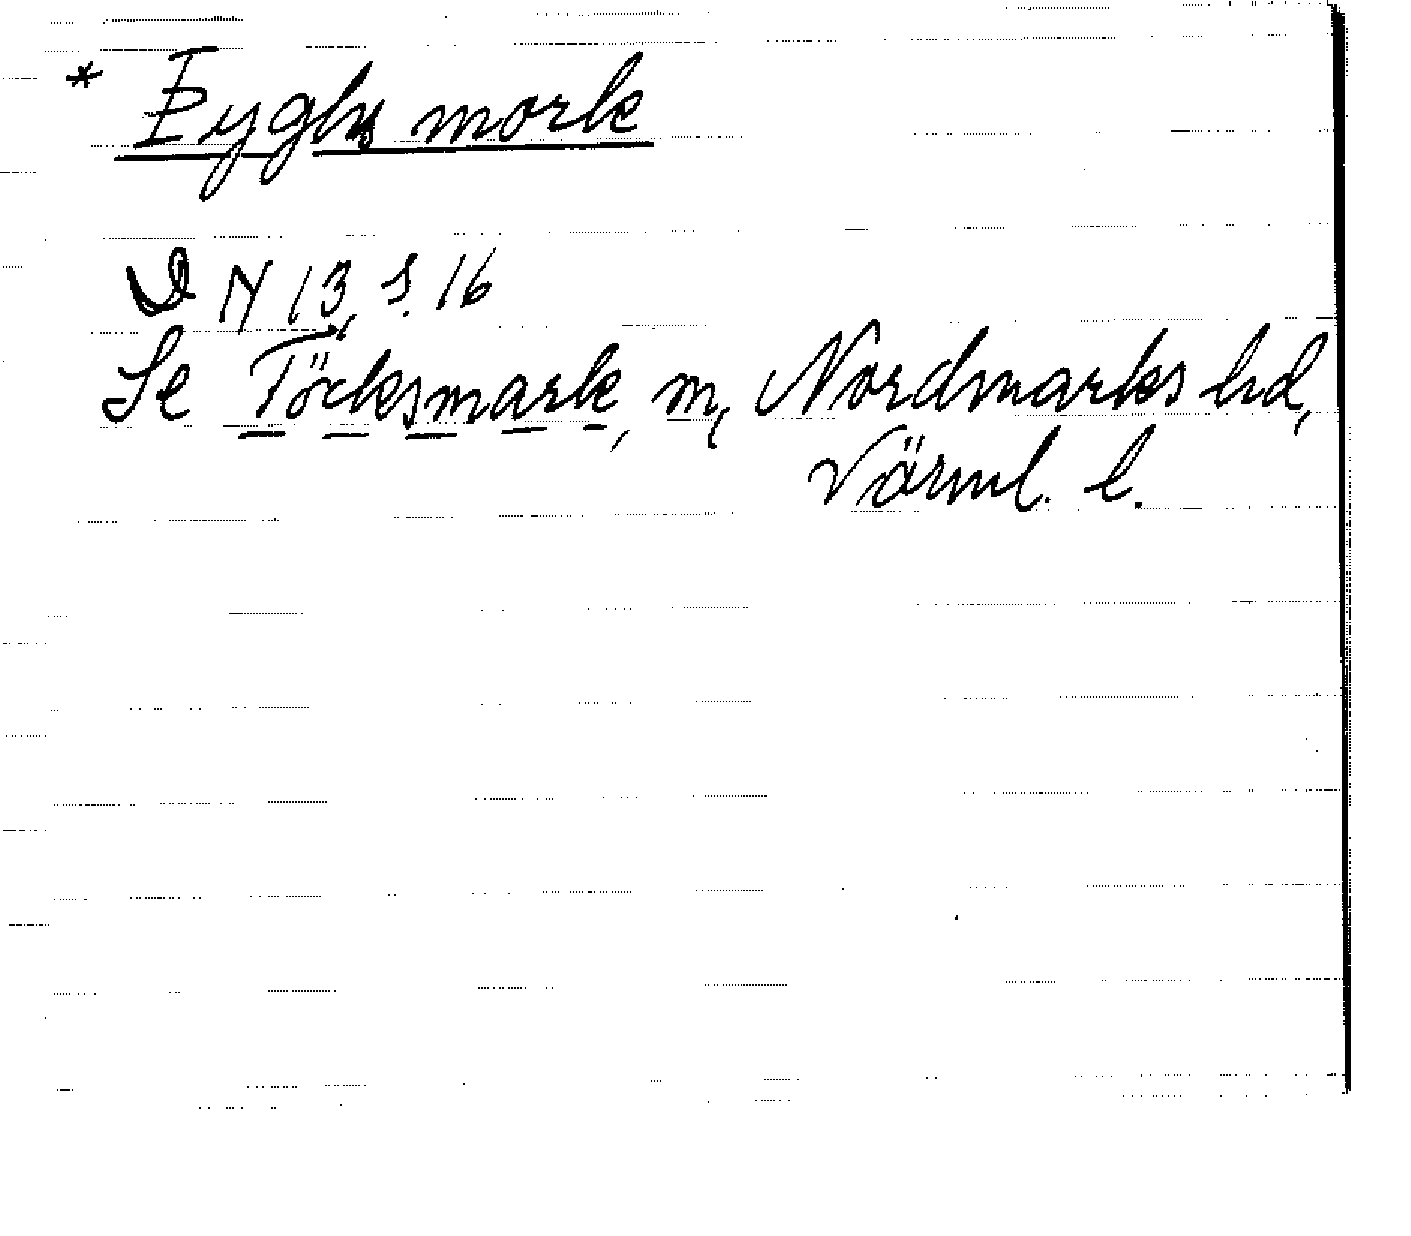 * Eyghs mork
D N 13, s. 16
Se Töcksmark, sn, Nordmarks hd,
Värml. l.